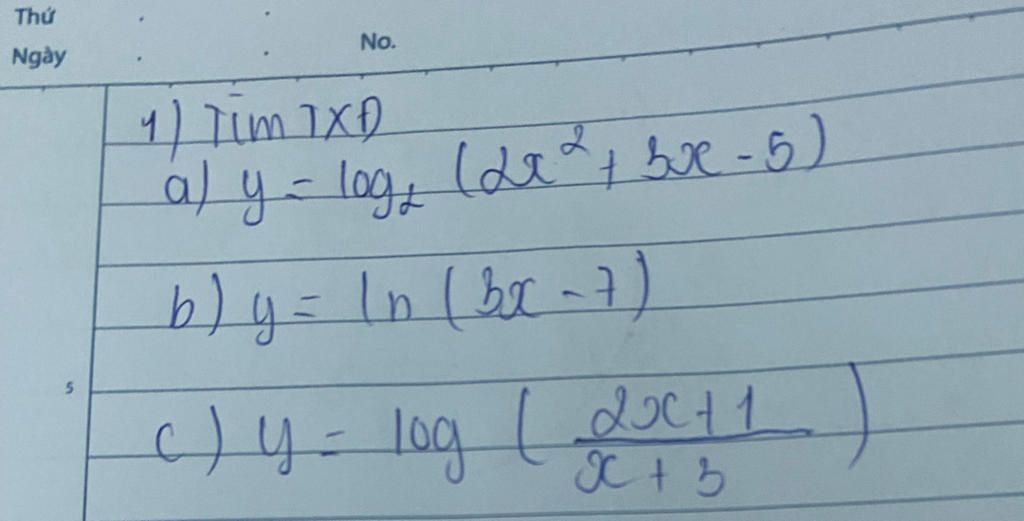 Thứ
Ngày
No.
1) Tìm TXĐ
a) y = log₂ (2x² + 3x - 5)
b) y = ln (3x - 7)
5
c) y = log ( (2x+1)/(x+3) )